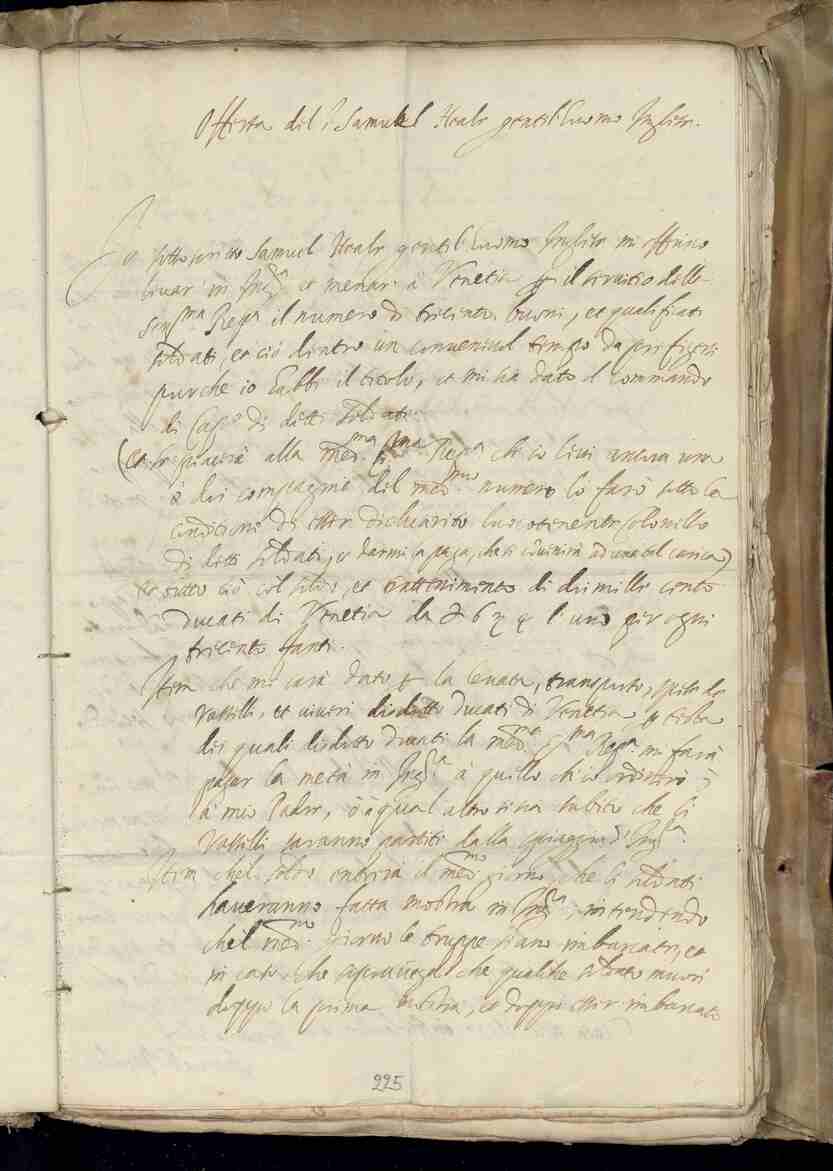 Offerta del S. Samuel Heale gentil'huomo Inglese.
Io sottoscritto Samuel Heale gentil'huomo Inglese mi offerisco
levar' in Ing.ra et menar' à Venetia p il servitio delle
Ser.ma Rep.a il numero di tricento buoni, et qualificati
soldati, et ciò dentro un convenevol tempo da prefigersi
purche io habbi il titolo, et mi sia dato il commando
di Cap.o di detti soldati.
(et se piacerà alla med.ma S.ma Rep.a ch'io levi ancora una
ò doi compagnie del med.mo numero lo farò sotto la
conditione di esser dichiarito luocotenente Colonello
di detti soldati, et darmi la paga, che si convenirà ad una tal carica)
et tutto ciò col soldo, et trattenimento di doi mille cento
ducati di Venetia da 6 l'uno per ogni
tricento fanti.
Item che mi sarà dato p la levata, transporto, spesa de
Vasselli, et viveri dieciotto ducati di Venetia p testa
dei quali dieciotto ducati la med.ma S.ma Rep.a mi farà
pagar la metà in Ing.ra à quello ch'io ordinerò
à mio Padre, ò à qual altro si sia subito che li
Vasselli saranno partiti dalla spiaggia d'Ing.ra.
Item che'l soldo entrerà il med.mo giorno, che li soldati
haveranno fatta mostra in Ing.ra, intendendo
che'l med.mo giorno le truppe siano imbarcate, et
in caso che che qualche soldato muori
doppo la prima mostra, et doppo esser imbarcato
225